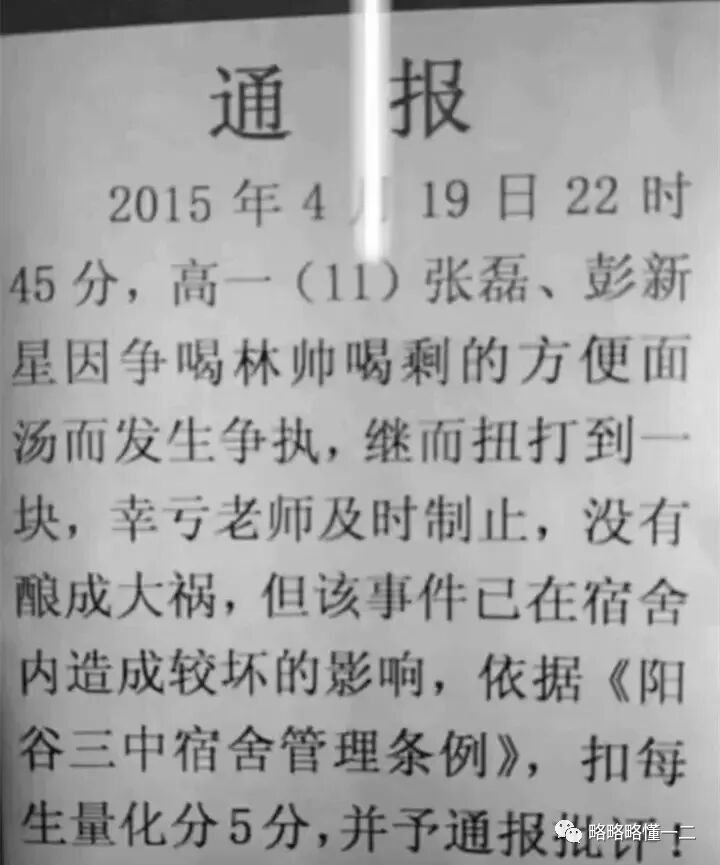 通 报
2015 年 4 月 19 日 22 时
45 分，高一（11）张磊、彭新
星因争喝林帅喝剩的方便面
汤而发生争执，继而扭打到一
块，幸亏老师及时制止，没有
酿成大祸，但该事件已在宿舍
内造成较坏的影响，依据《阳
谷三中宿舍管理条例》，扣每
生量化分 5 分，并予通报批评！
略略略懂一二